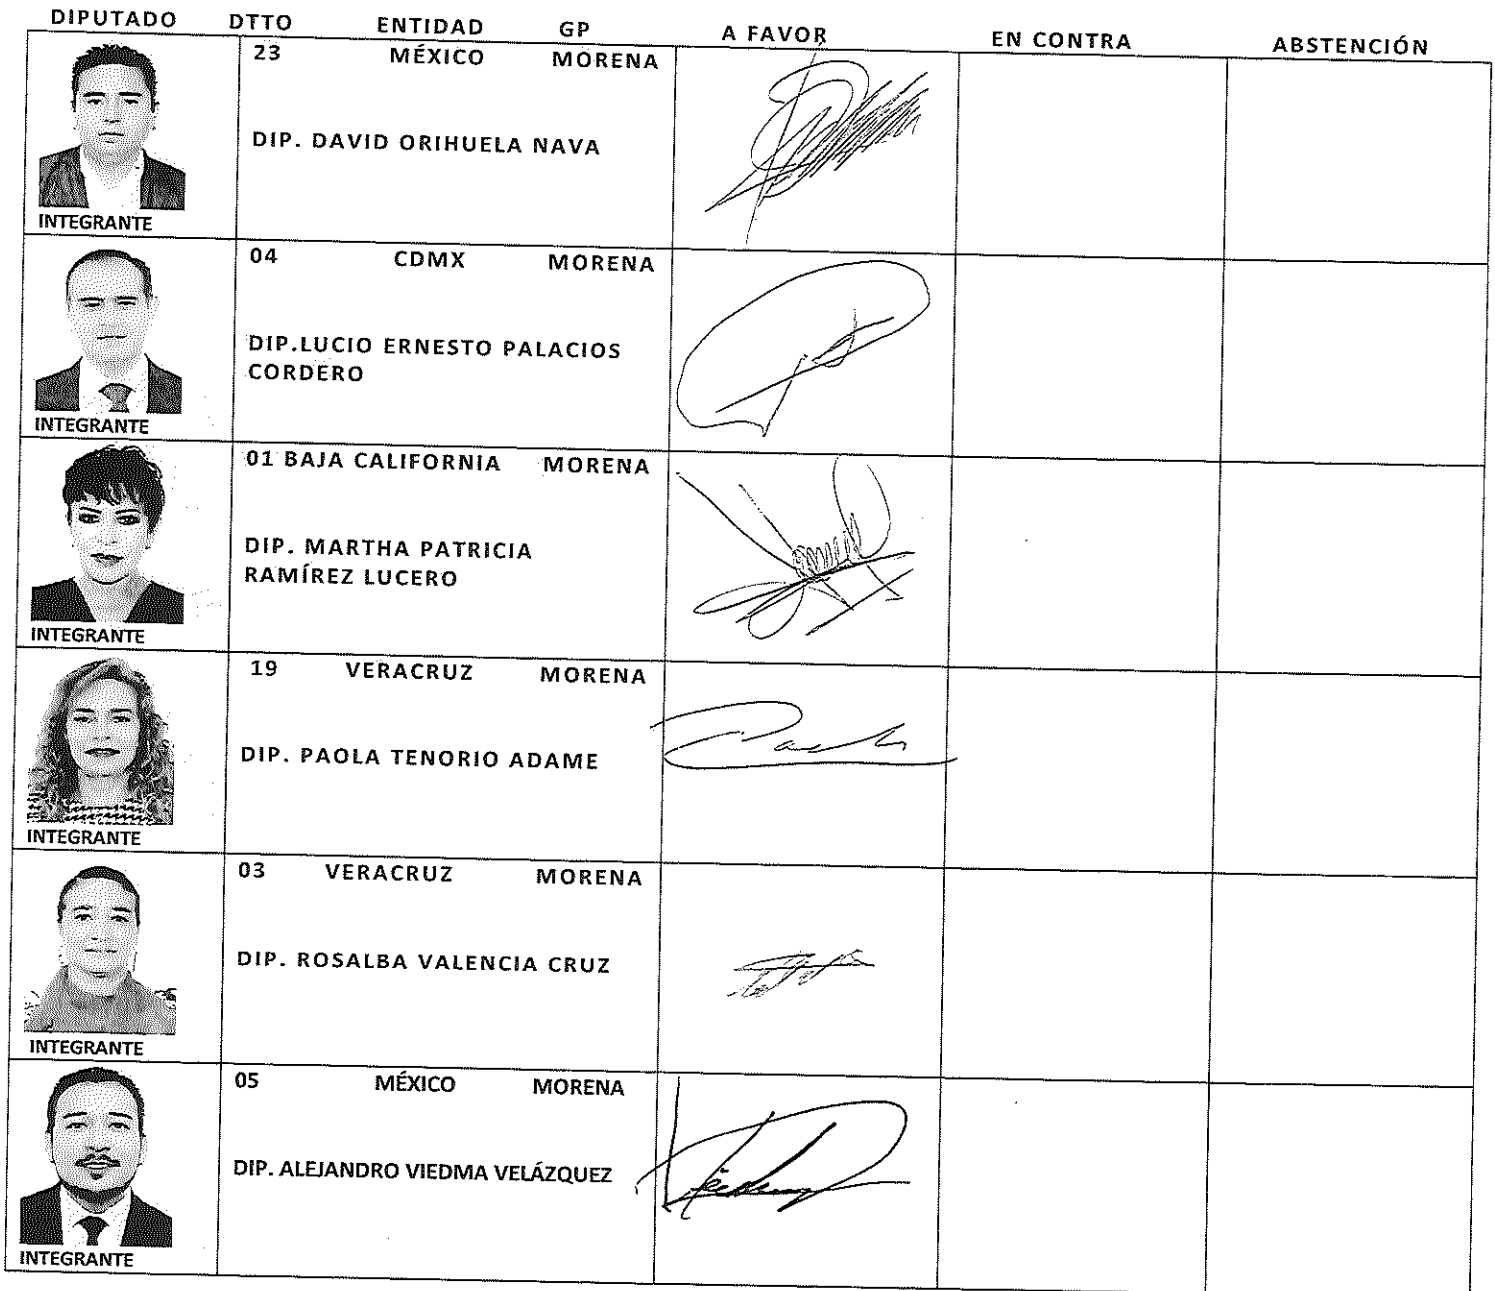 DIPUTADO DTTO ENTIDAD GP A FAVOR EN CONTRA ABSTENCIÓN
23 MÉXICO MORENA
DIP. DAVID ORIHUELA NAVA
INTEGRANTE
04 CDMX MORENA
DIP.LUCIO ERNESTO PALACIOS
CORDERO
INTEGRANTE
01 BAJA CALIFORNIA MORENA
DIP. MARTHA PATRICIA
RAMÍREZ LUCERO
INTEGRANTE
19 VERACRUZ MORENA
DIP. PAOLA TENORIO ADAME
INTEGRANTE
03 VERACRUZ MORENA
DIP. ROSALBA VALENCIA CRUZ
INTEGRANTE
05 MÉXICO MORENA
DIP. ALEJANDRO VIEDMA VELÁZQUEZ
INTEGRANTE